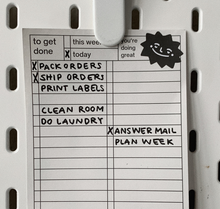 to get done
this week
X today
you're doing great
X PACK ORDERS
X SHIP ORDERS
PRINT LABELS
CLEAN ROOM
DO LAUNDRY
X ANSWER MAIL
PLAN WEEK